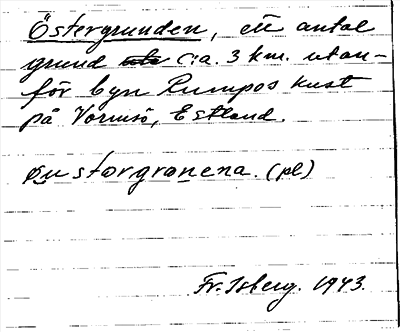 Östergrunden, ett antal
grund c:a. 3 km. utan-
för byn Rumpos kust
på Vormsö, Estland.
storgronena. (pl)
Fr. Isberg. 1943.